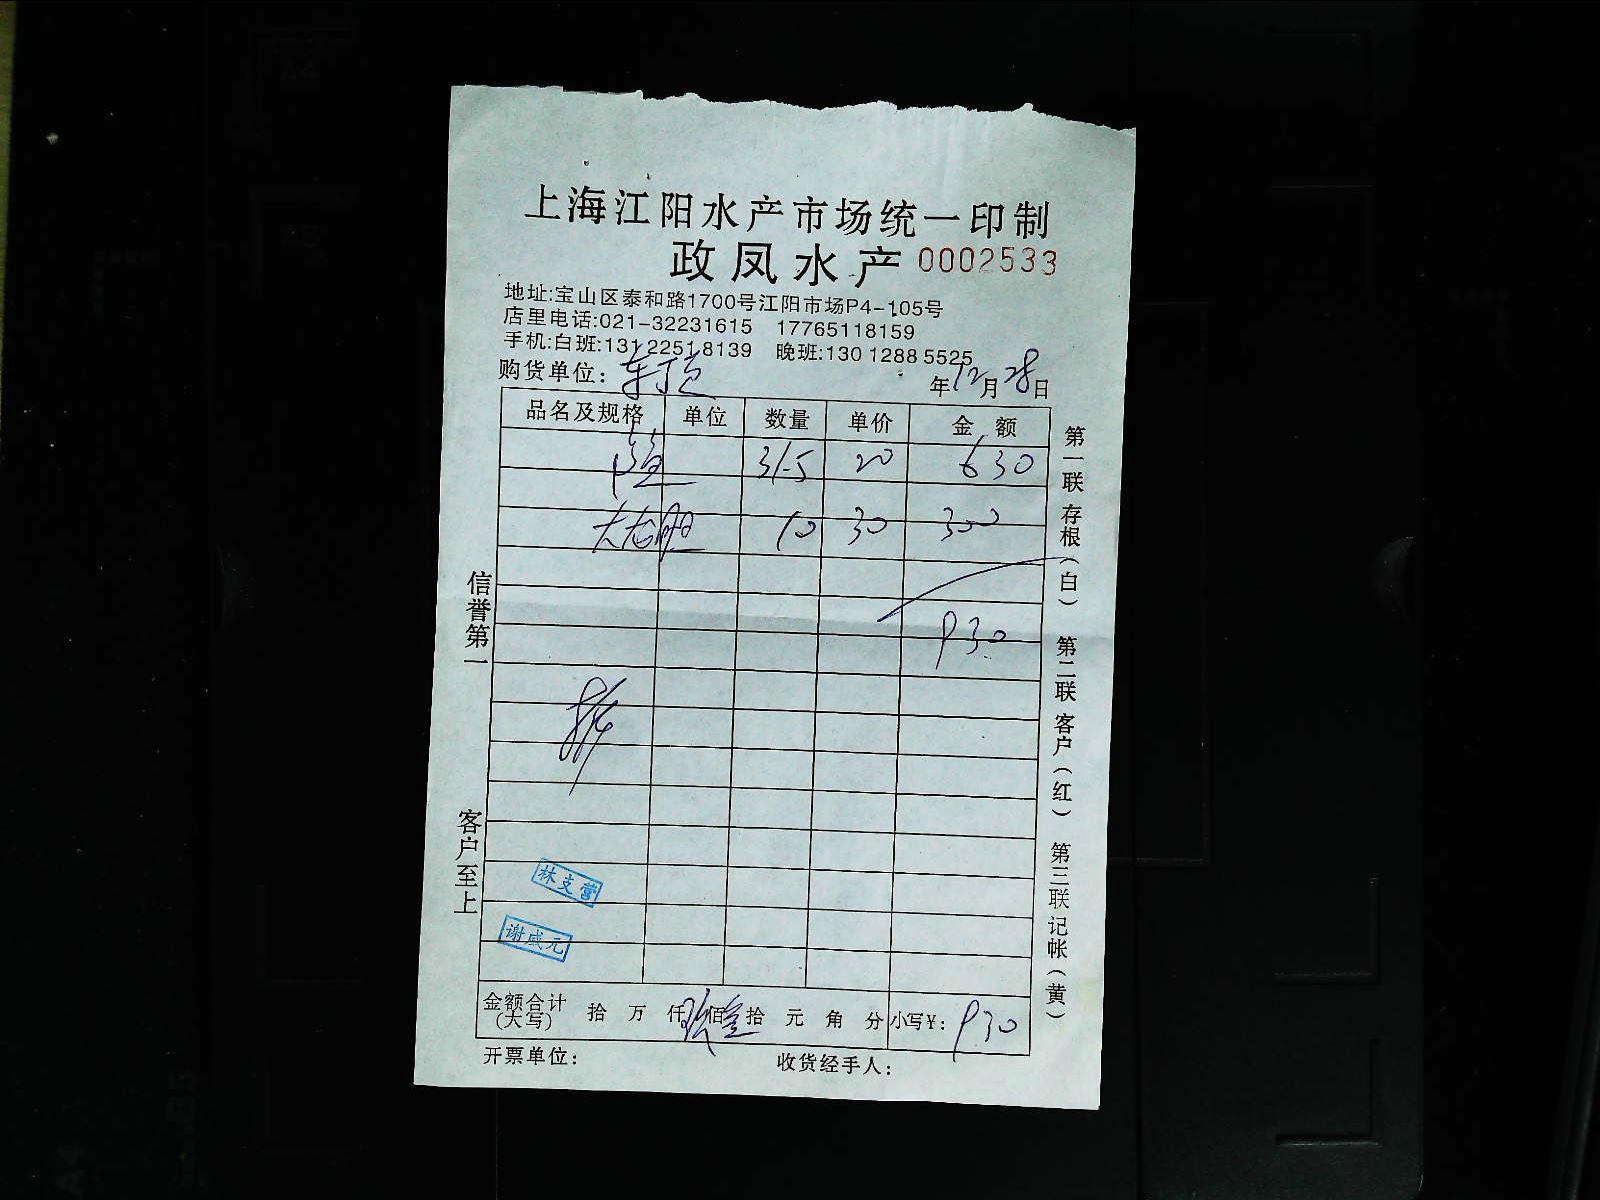 上海江阳水产市场统一印制
政凤水产 0002533
地址:宝山区泰和路1700号江阳市场P4-105号
店里电话:021-32231615 17765118159
手机:白班:131 2251 8139 晚班:130 1288 5525
购货单位: 年12月28日
品名及规格 单位 数量 单价 金额
31.5 20 630
10 30 300
930
信誉第一
客户至上
林支营
谢成元
金额合计(大写) 拾 万 仟玖佰叁拾 元 角 分 小写¥: 930
开票单位: 收货经手人:
第一联 存根(白) 第二联 客户(红) 第三联 记帐(黄)